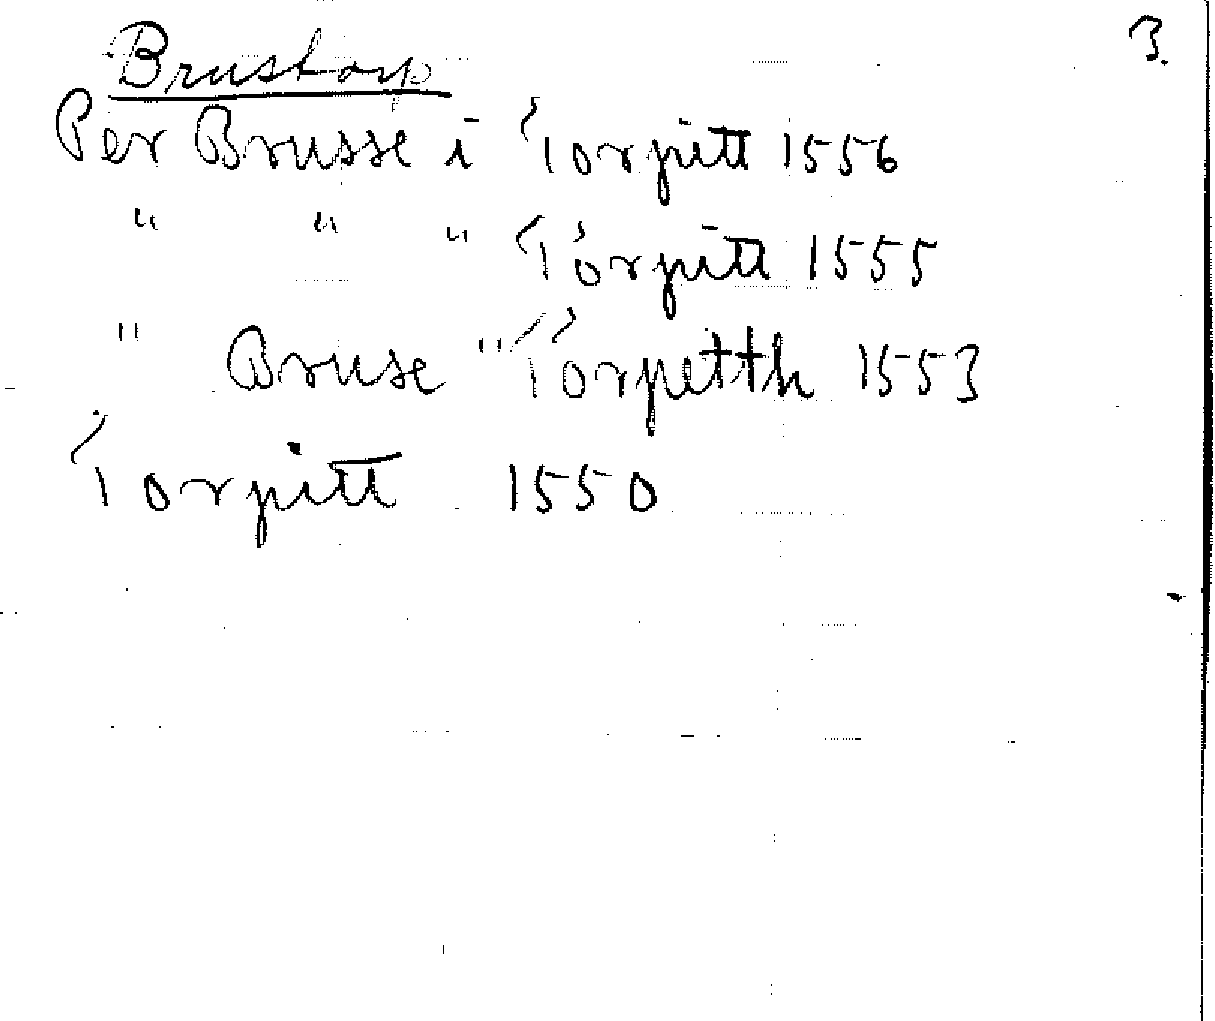 3.
Brustorp
Per Brusse i Torpitt 1556
" " " Torpitt 1555
" Bruse " Torpetth 1553
Torpitt 1550